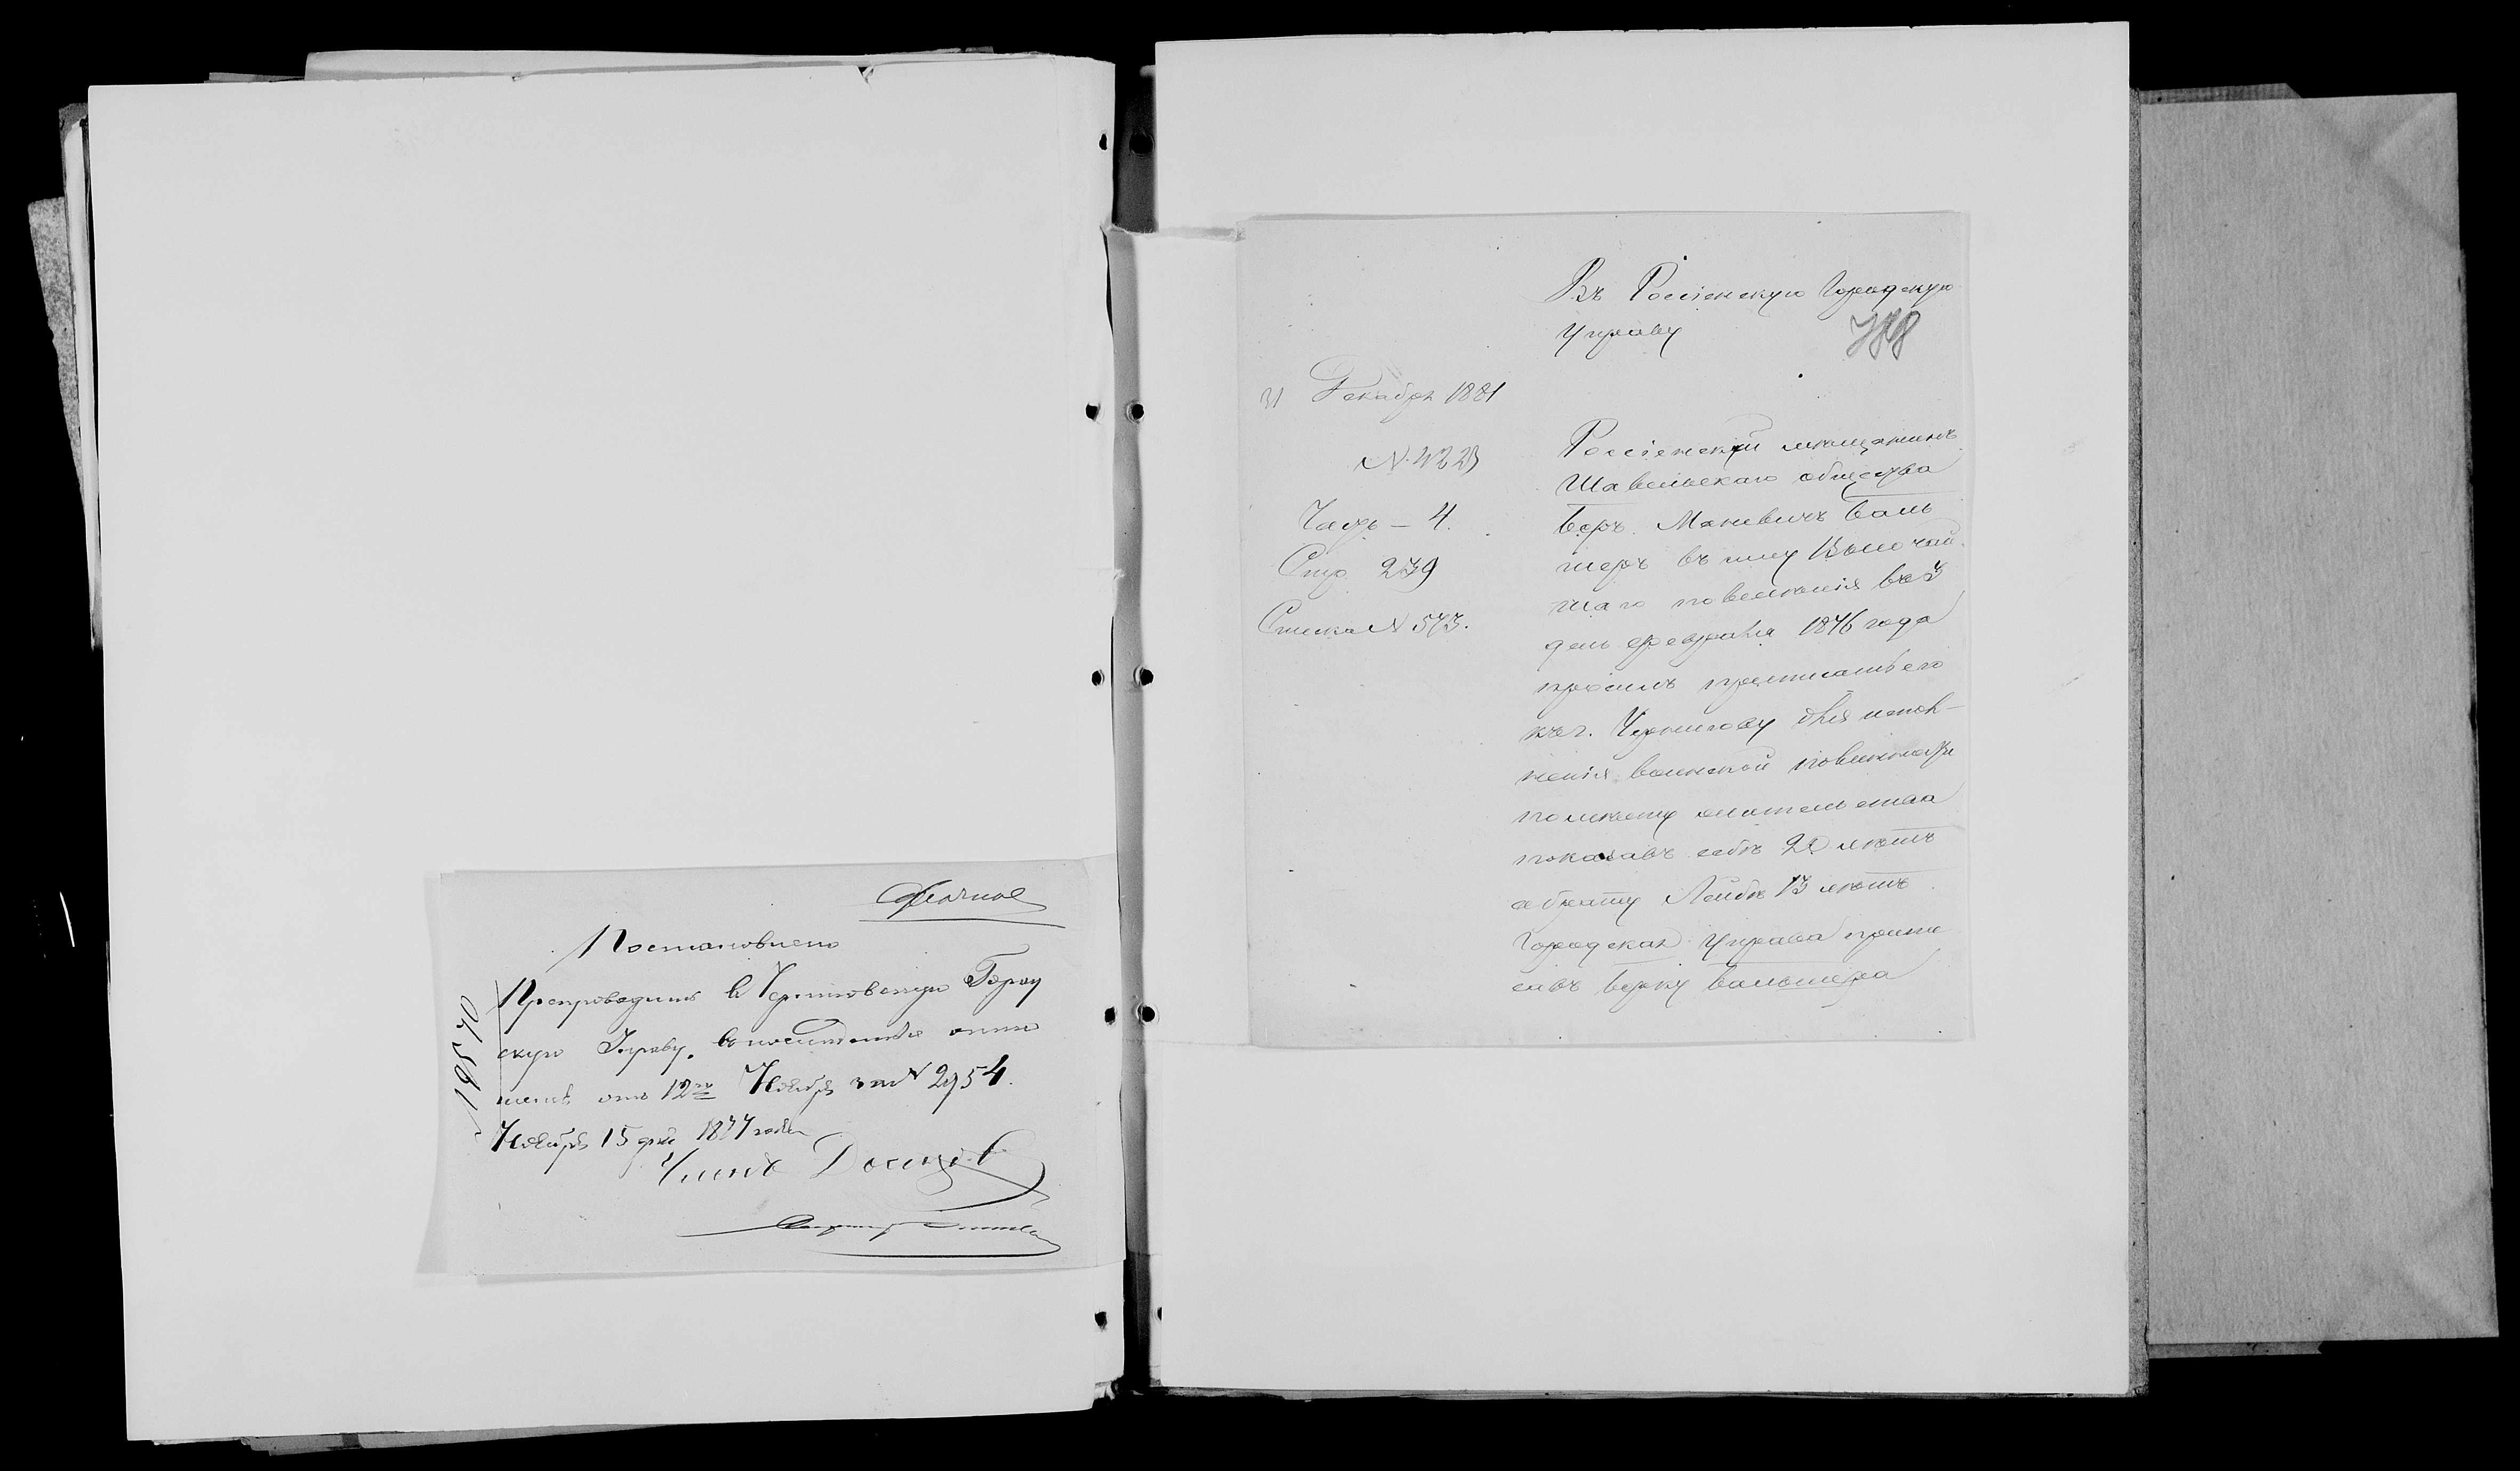 Срочное
Постановлено
Препроводить в Черниговскую Город
скую Управу, в последствіе отно
шенія отъ 12го Ноября за № 2954.
Ноября 15 дня 1877 года
Членъ
Въ Россіенскую Городскую
Управу
31 Декабря 1881
N. 4223
Часть – 4.
Стр. 239
Списка N 573.
Россіенскій мѣщанинъ
Шавельскаго общества
Беръ Маневичъ Валь
теръ въ силу Высочай
шаго повелѣнія въ 3
день февраля 1876 года
просилъ приписать его
къ г. Чернигову для испол-
ненія воинской повинности
по мѣсту жительства
показавъ себѣ 20 лѣтъ
а брату Лейбѣ 13 лѣтъ
Городская Управа припи
савъ Берку Вальтера